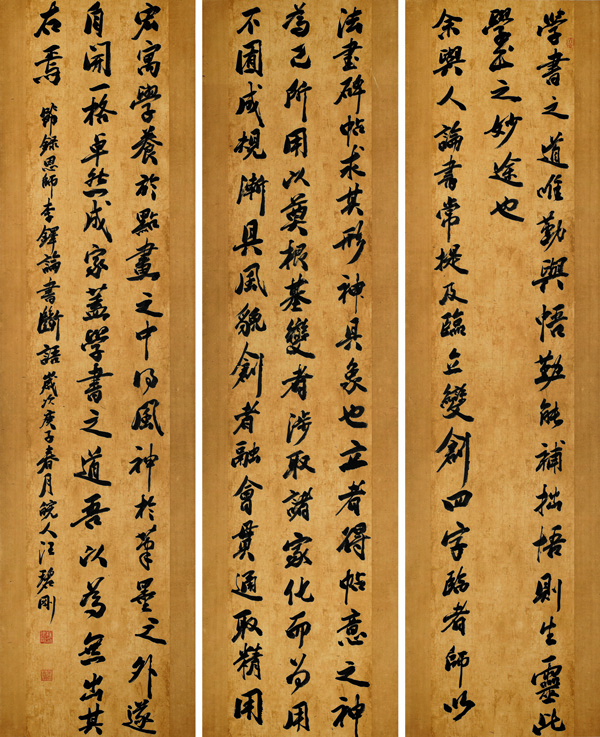 學書之道唯勤與悟勤能補拙悟則生靈此
學書之妙途也
余與人論書常提及臨立變創四字臨者師以
法書碑帖求其形神具象也立者碍帖意之神
為己所用以奠根基變者涉取諸家化而為用
不囿成規漸具風貌創者融會貫通取精用
宏寓學養於點畫之中得風神於筆墨之外遂
自開一格卓然成家蓋學書之道吾以為無出其
右焉
節錄恩師李鐸論書斷語歲次庚子春月皖人汪碧剛